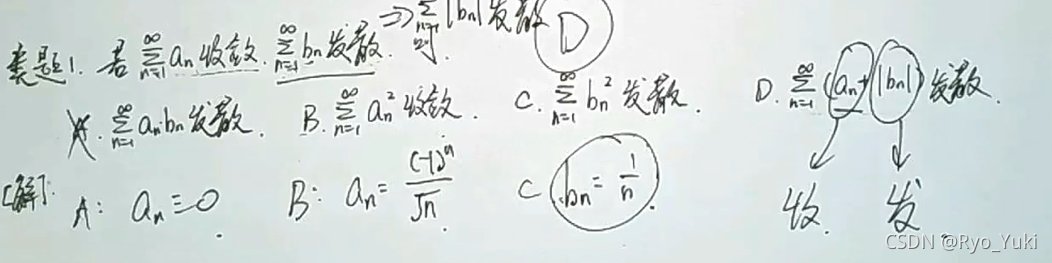 ⇒ ∑_{n=1}^{∞} |bn| 发散
类题1. 若 ∑_{n=1}^{∞} an 收敛. ∑_{n=1}^{∞} bn 发散. 时 D
A. ∑_{n=1}^{∞} an·bn 发散. B. ∑_{n=1}^{∞} an² 收敛. C. ∑_{n=1}^{∞} bn² 发散. D. ∑_{n=1}^{∞} (an+|bn|) 发散.
[解]: A: an≡0 B: an = (-1)^n/√n C bn = 1/n. 收. 发.
CSDN @Ryo_Yuki